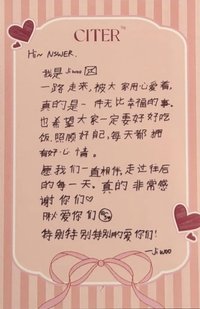 CITER™
Hi~ NSWER.
我是Jiwoo
一路走来,被大家用心爱着,
真的是一件无比幸福的事.
也希望大家一定要好好吃
饭,照顾好自己,每天都拥
有好心情。
愿我们一直相伴,走过往后
的每一天。真的非常感
谢你们♡
爱你们
特别特别特别的爱你们!
-Jiwoo